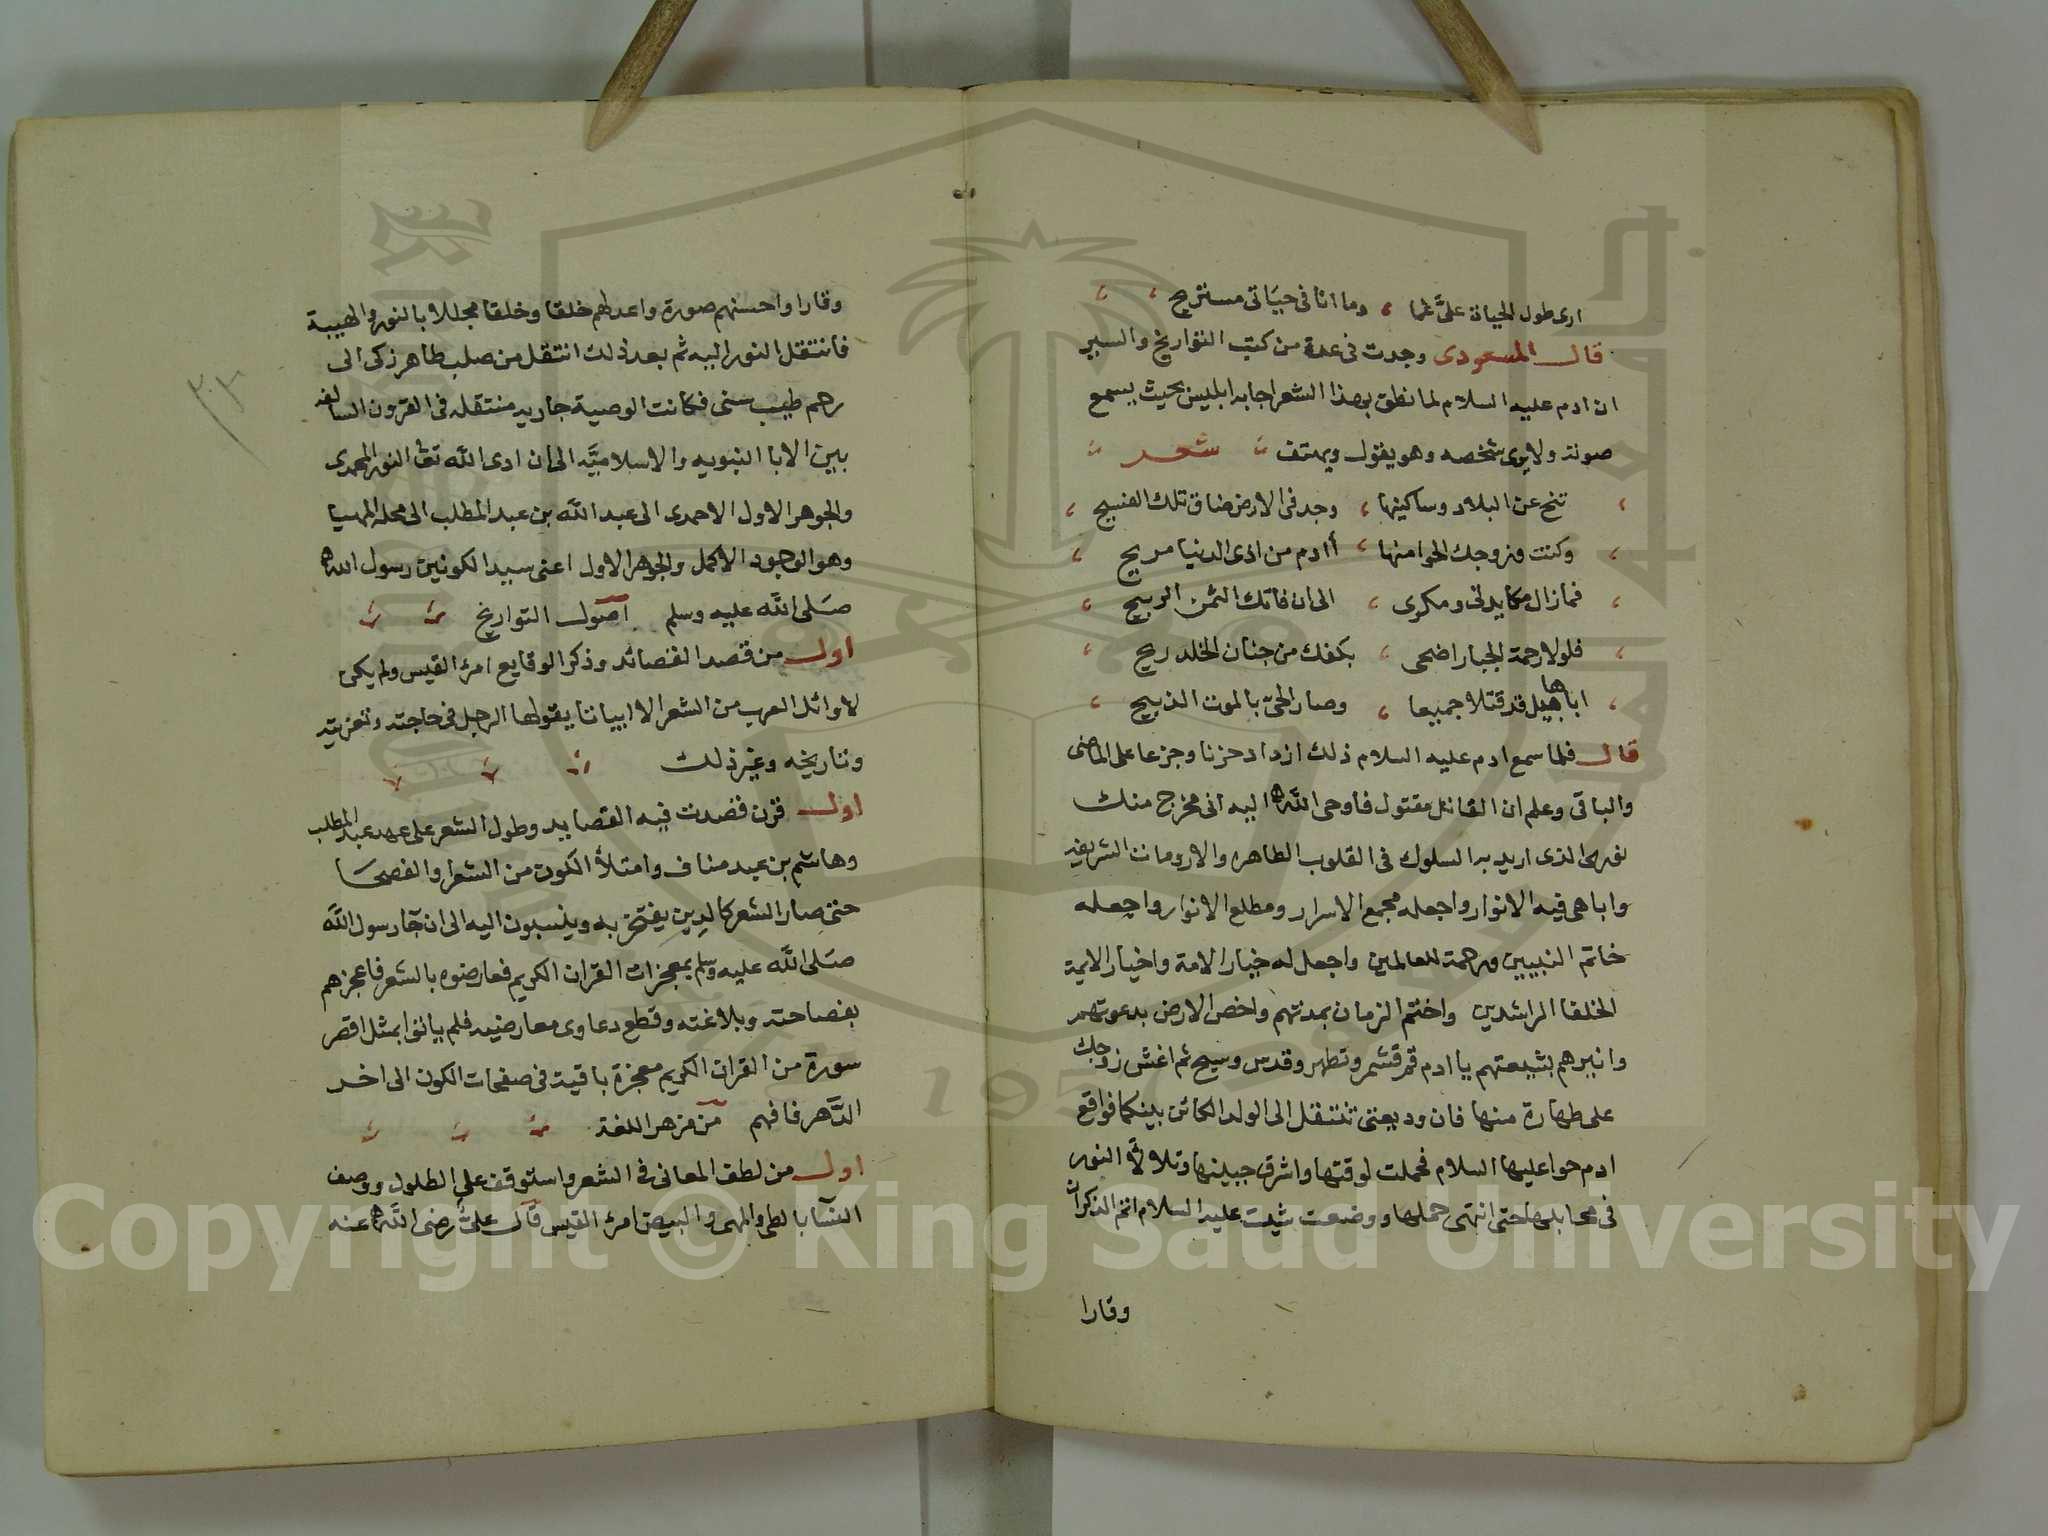 ارى طول الحياة علىّ غما ، وما انا فى حياتى مستريح
قال المسعودى وجدت فى عدة من كتب التواريخ والسير
ان ادم عليه السلام لما نطق بهذا الشعر اجابه ابليس بحيث يسمع
صوته ولا يرى شخصه وهو يقول ويهتف شعر
تنح عن البلاد وساكنيها ، وجد فى الارض ضاق تلك الفسيح
وكنت وزوجك الحوا منها ، أادم من اذى الدنيا مريح
فما زال مكايدتى ومكرى ، الى ان فاتك الثمن الربيح
فلولا رحمة الجبار اضحى ، بكفك من جنان الخلد ريح
ابا هابيل قد قتلا جميعا ، وصار الحىّ بالموت الذبيح
قال فلما سمع ادم عليه السلام ذلك ازداد حزنا وجزعا على الماضى
والباقى وعلم ان القاتل مقتول فاوحى الله اليه انى مخرج منك
نورى الذى اريد به السلوك فى القلوب الطاهره والارومات الشريفه
واباهى فيه الانوار واجعله مجمع الاسرار ومطلع الانوار واجعله
خاتم النبيين ورحمة للعالمين واجعل له خيار الامة واخيار الايمة
الخلفا الراشدين واختم الزمان بمدتهم واخص الارض بدعوتهم
وانيرهم بشيعتهم يا ادم قم قشمر وتطهر وقدس وسبح ثم اغش زوجك
على طهارة منها فان وديعتى تنتقل الى الولد الكائن بينكما فواقع
ادم حوا عليها السلام فحملت لوقتها واشرق جبينها وتلالأ النور
فى محايلها حتى انتهى حملها ووضعت شيث عليه السلام اتم الذكران
وقارا
وقارا واحسنهم صورة واعدلهم خلقا وخلقا مجللا بالنور والهيبة
فانتقل النور اليه ثم بعد ذلك انتقل من صلب طاهر زكى الى
رحم طيب سنى فكانت الوصية جاريه منتقله فى القرون السالفه
بين الابا النبويه والاسلاميّه الى ان ادى الله تعا النور المحمدى
والجوهر الاول الاحمدى الى عبد الله بن عبد المطلب الى محله المهيا
وهو الوجود الاكمل والجوهر الاول اعنى سيد الكونين رسول الله
صلى الله عليه وسلم اصول التواريخ
اول من قصد القصائد وذكر الوقايع امرؤ القيس ولم يكن
لاوائل العرب من الشعر الا ابياتا يقولها الرجل فى حاجته وتعزيته
وتاريخه وغير ذلك
اول قرن قصدت فيه القصايد وطول الشعر على عهد عبد المطلب
وهاشم بن عبد مناف وامتلأ الكون من الشعرا والفصحا
حتى صار الشعر كالدين يفتخر به وينسبون اليه الى ان جآ رسول الله
صلى الله عليه وسلم بمعجزات القران الكريم فعارضوه بالشعر فاعجزهم
بفصاحته وبلاغته وقطع دعاوى معارضيه فلم ياتوا بمثل اقصر
سورة من القران الكريم معجزة باقية فى صفحات الكون الى اخر
الدّهر فافهم من مزهر اللغة
اول من لطف المعانى فى الشعر واستوقف على الطلول ووصف
النسآ بالظى والمهى والبيض امرؤ القيس قال علىّ رضى الله عنه
٣٠٢
Copyright © King Saud University